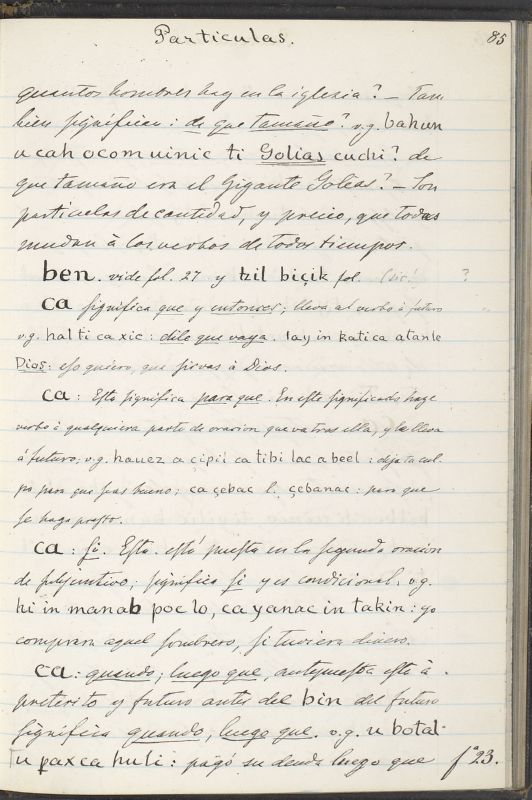 Particulas.
85
quantos hombres hay en la iglesia? - Tam
bien significan: de que tamaño? v.g. bahun
u cah ocom uinic ti Golias cuchi? de
que tamaño era el Gigante Golias? - Son
particulas de cantidad, y precio, que todas
mudan à los verbos de todos tiempos.
ben. vide fol. 27 y tzil biçik fol. (sic!) ?
ca significa que y entonces; lleva al verbo à futuro
v.g. hal ti ca xic: dile que vaya. lay in katica a tanle
Dios: eso quiero, que sirvas à Dios.
ca: Esta significa para que. En este significado haze
verbo à qualquiera parte de oracion que va tras ella, y la lleva
à futuro; v.g. hauez a çipil ca tibilac a beel: deja tu cul
pa para que seas bueno; ca çebac l. çebanac: para que
se haga presto.
ca: si. Esta. està puesta en la segunda oracion
de subjuntivo; significa si y es condicional. v.g.
hi in manab poc lo, ca yanac in takin: yo
comprara aquel sombrero, si tuviera dinero.
ca: quando, luego que, antepuesta esta à
preterito y futuro antes del bin del futuro
significa quando, luego que. v.g. u botal
u pax ca huli: pagó su deuda luego que fº 23.